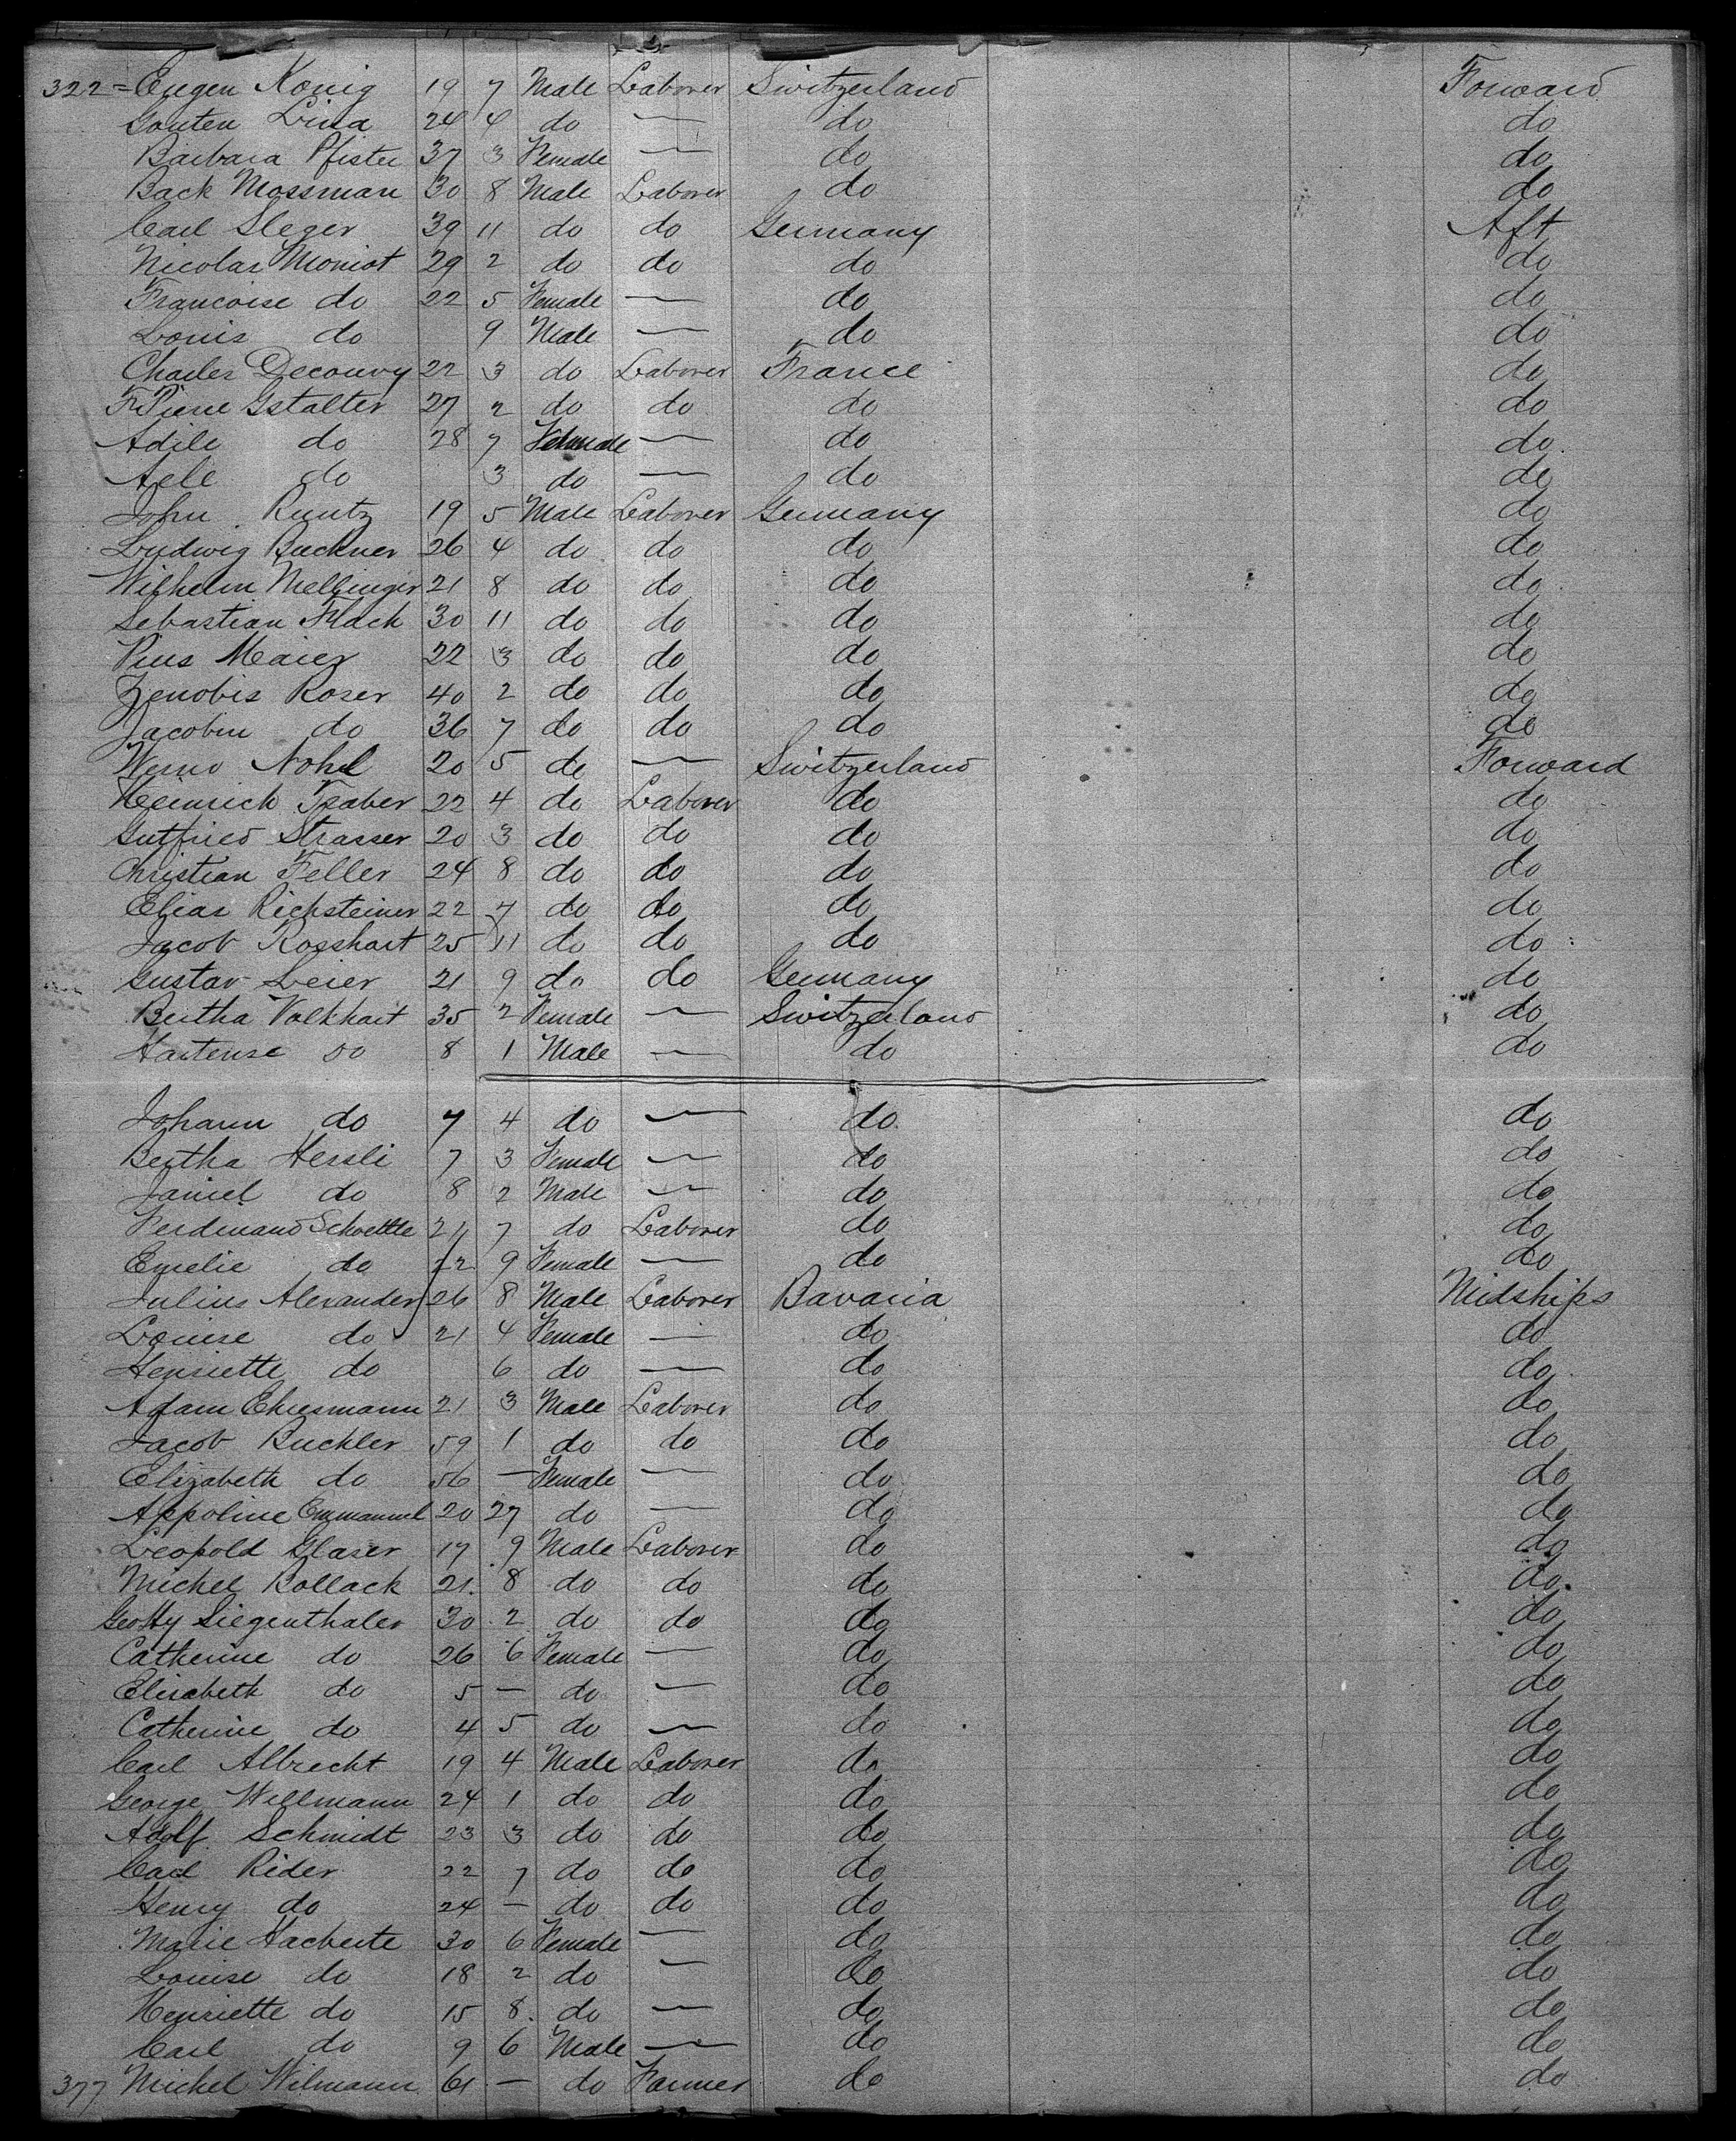 322 = Eugen König 19 7 Male Laborer Switzerland Forward
Gouten Lina 24 4 do — do do
Barbara Pfister 37 3 Female — do do
Back Mossman 30 8 Male Laborer do do
Carl Sleger 39 11 do do Germany Aft
Nicolas Moniot 29 2 do do do do
Francoise do 22 5 Female — do do
Louis do 9 Male — do do
Charles Decouvy 22 3 do Laborer France do
F. Pierre Gstalter 27 2 do do do do
Adile do 28 7 Female — do do
Aele do 3 do — do do
John Runtz 19 5 Male Laborer Germany do
Ludwig Buckner 26 4 do do do do
Wilhelm Mellinger 21 8 do do do do
Sebastian Flack 30 11 do do do do
Pius Meaier 22 3 do do do do
Zenobis Roser 40 2 do do do do
Jacobin do 36 7 do do do do
Werno Nohl 20 5 do — Switzerland Forward
Heinrich Traber 22 4 do Laborer do do
Gutfried Strasser 20 3 do do do do
Christian Feller 24 8 do do do do
Elias Richsteiner 22 7 do do do do
Jacob Rosshart 25 11 do do do do
Gustav Leier 21 9 do do Germany do
Bertha Volkhart 35 2 Female — Switzerland do
Hartense do 8 1 Male — do do
Johann do 7 4 do — do do
Bertha Hersli 7 3 Female — do do
Daniel do 8 2 Male — do do
Ferdinand Schoettle 21 7 do Laborer do do
Emelie do 22 9 Female — do do
Julius Alexander 26 8 Male Laborer Bavaria Midships
Louise do 21 4 Female — do do
Henriette do 6 do — do do
Adam Ehresmann 21 3 Male Laborer do do
Jacob Buckler 59 1 do do do do
Elizabeth do 56 — Female — do do
Appoline Emmanuel 20 27 do — do do
Leopold Glaser 17 9 Male Laborer do do
Michel Bollack 21 8 do do do do
Siegenthaler 30 2 do do do do
Catherine do 26 6 Female — do do
Elisabeth do 5 — do — do do
Catherine do 4 5 do — do do
Carl Albrecht 19 4 Male Laborer do do
George Willmann 24 1 do do do do
Adolf Schmidt 23 3 do do do do
Carl Rider 22 7 do do do do
Henry do 24 — do do do do
Marie Hacberte 30 6 Female — do do
Louise do 18 2 do — do do
Henriette do 15 8 do — do do
Carl do 9 6 Male — do do
377 Michel Wilmann 61 — do Farmer do do